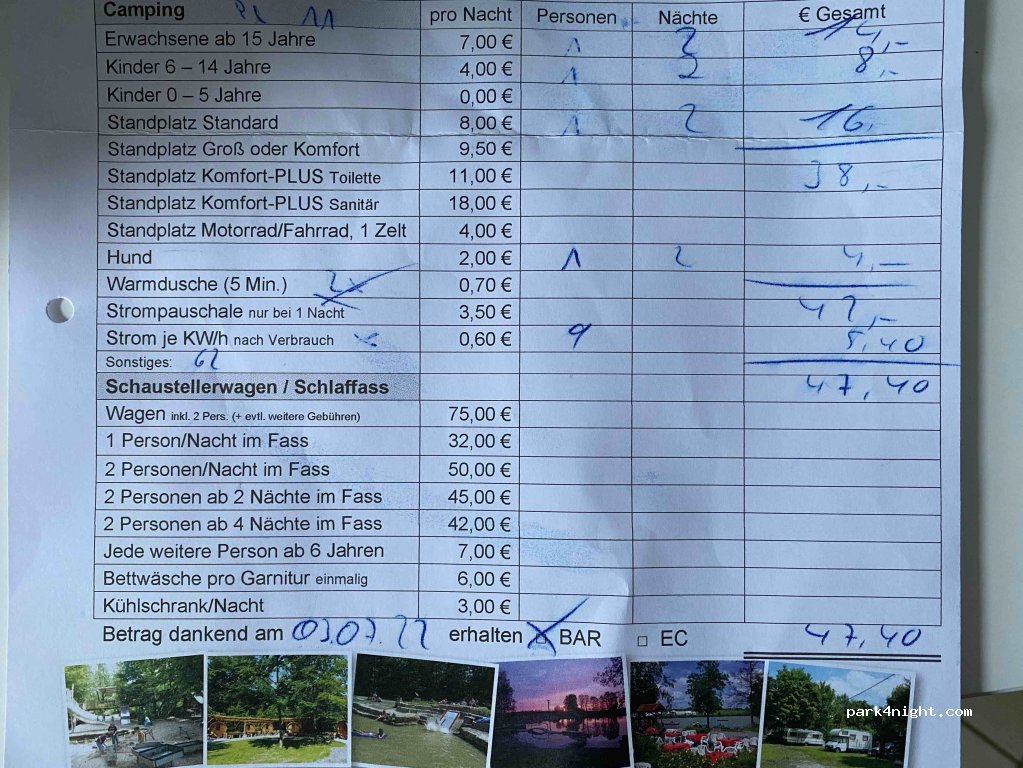 Camping Pl 11 pro Nacht Personen Nächte € Gesamt
Erwachsene ab 15 Jahre 7,00 € 1 2 14,-
Kinder 6 – 14 Jahre 4,00 € 1 2 8,-
Kinder 0 – 5 Jahre 0,00 €
Standplatz Standard 8,00 € 1 2 16,-
Standplatz Groß oder Komfort 9,50 €
Standplatz Komfort-PLUS Toilette 11,00 € 38,-
Standplatz Komfort-PLUS Sanitär 18,00 €
Standplatz Motorrad/Fahrrad, 1 Zelt 4,00 €
Hund 2,00 € 1 2 4,-
Warmdusche (5 Min.) 0,70 €
Strompauschale nur bei 1 Nacht 3,50 € 42,-
Strom je KW/h nach Verbrauch 0,60 € 9 5,40
Sonstiges: 62
Schaustellerwagen / Schlaffass 47,40
Wagen inkl. 2 Pers. (+ evtl. weitere Gebühren) 75,00 €
1 Person/Nacht im Fass 32,00 €
2 Personen/Nacht im Fass 50,00 €
2 Personen ab 2 Nächte im Fass 45,00 €
2 Personen ab 4 Nächte im Fass 42,00 €
Jede weitere Person ab 6 Jahren 7,00 €
Bettwäsche pro Garnitur einmalig 6,00 €
Kühlschrank/Nacht 3,00 €
Betrag dankend am 03.07.22 erhalten ☒ BAR □ EC 47,40
park4night.com